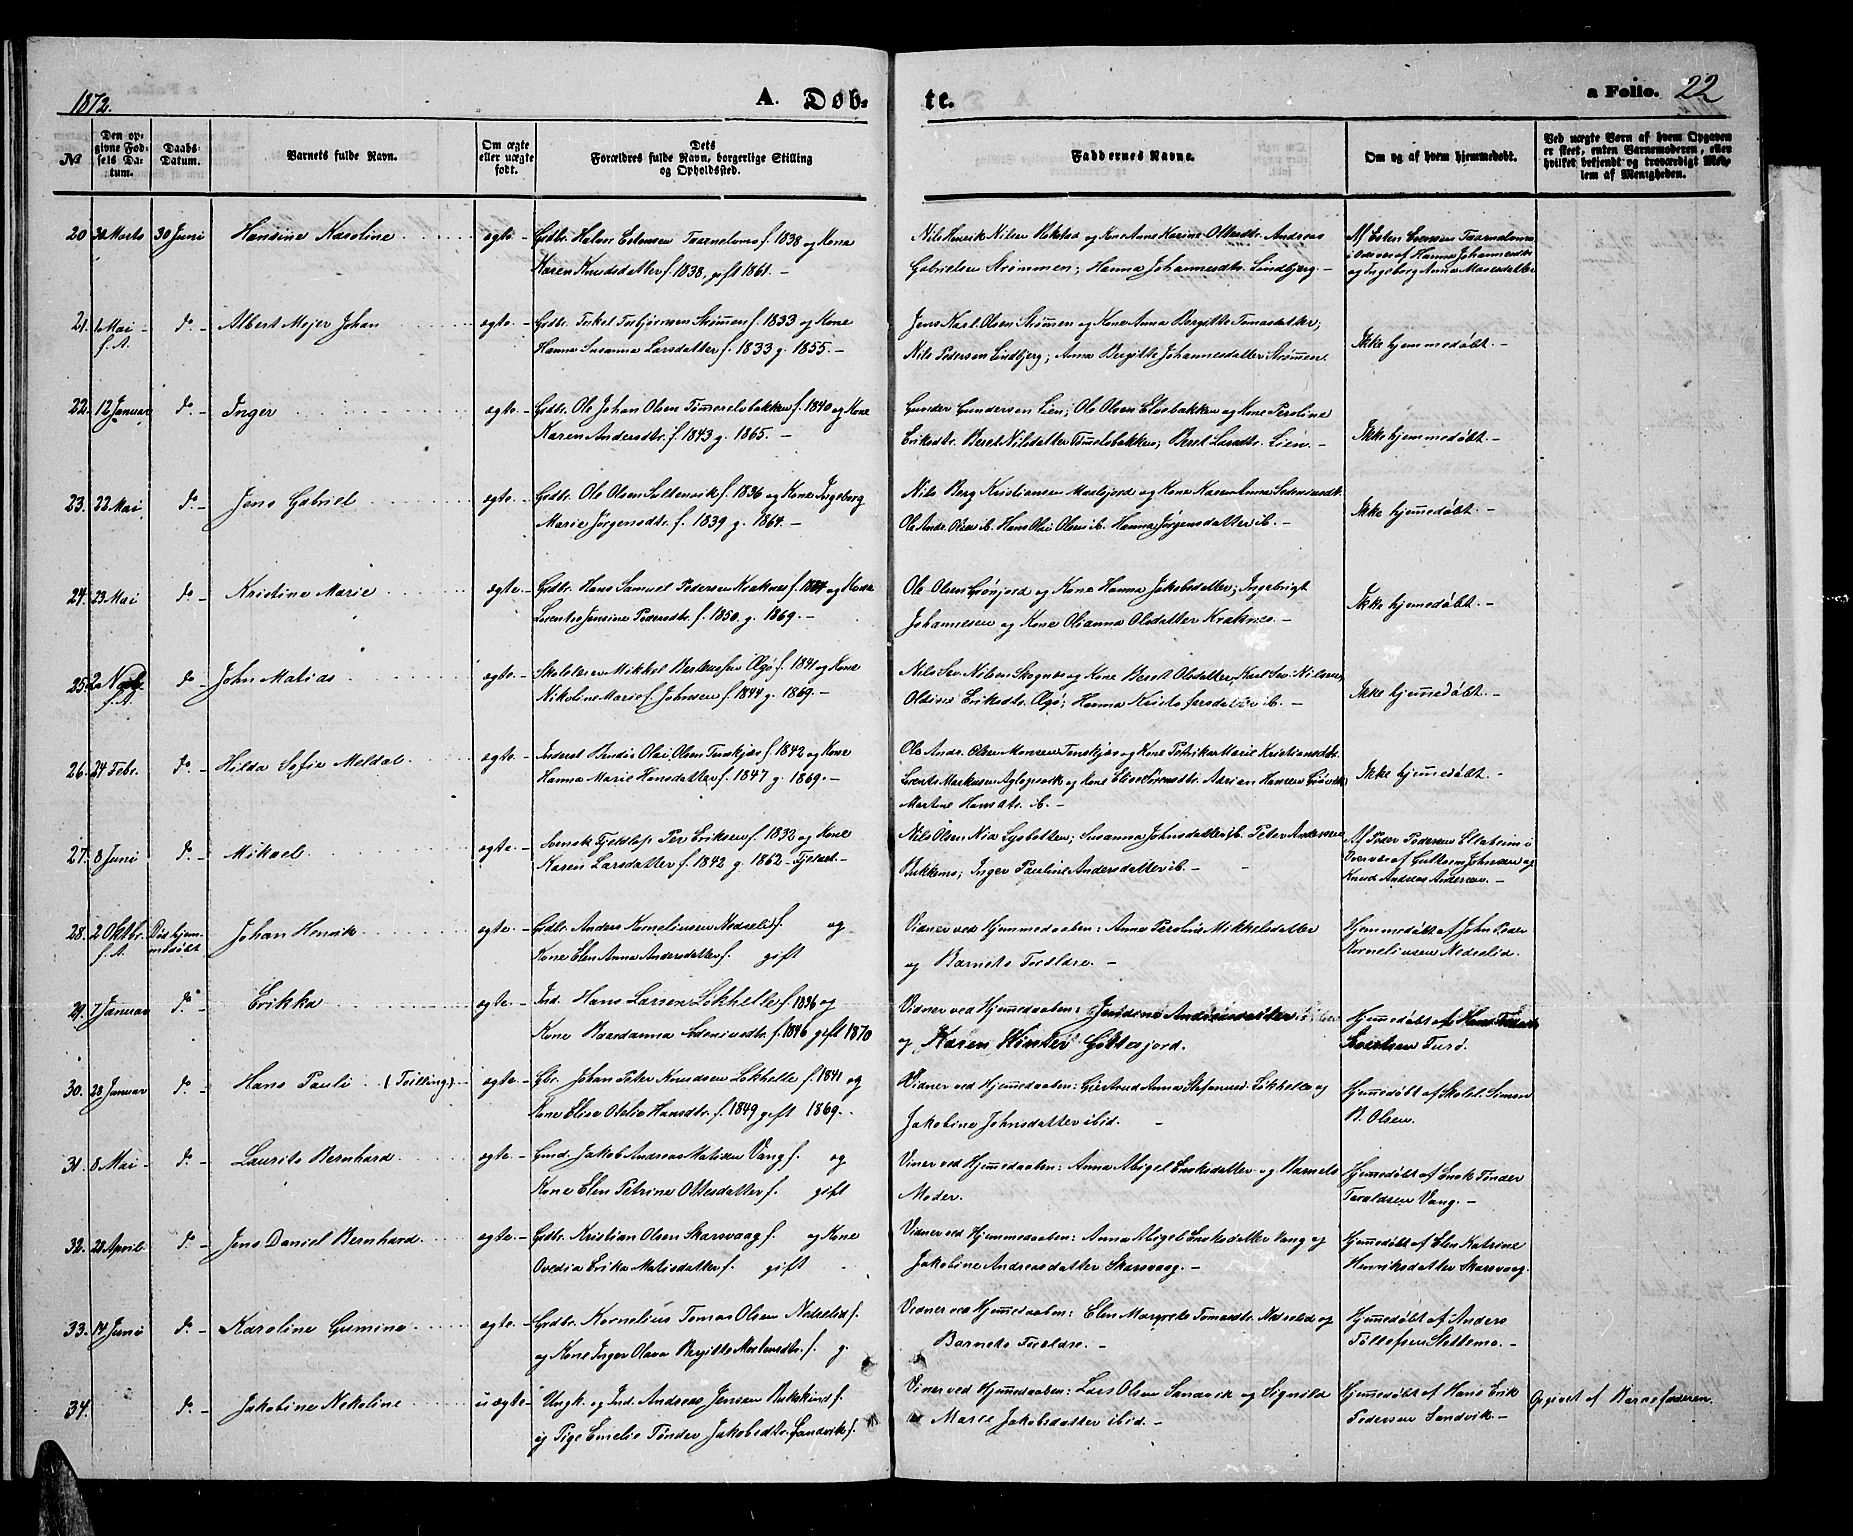 1872.
A. Døb-
te.
a Folio. 22
№
Den op-
givne Fød-
sels Da-
tum.
Daabs-
Datum.
Barnets fulde Navn.
Om ægte
eller uægte
født.
Dets
Forældres fulde Navn, borgerlige Stilling
og Opholdssted.
Faddernes Navne.
Om og af hvem hjemmedøbt.
Ved uægte Børn af hvem Opgaven
er skeet, enten Barnemoderen, eller
hvilket bekjendt og troværdigt Med-
lem af Menigheden.
20 30 Marts 30 Juni Hansine Karoline ægte Gdbr. Halvor Estensen f. 1838 og Kone
Karen Knudsdatter f. 1838, gift 1861. –
Nils Henrik Nilsen og Kone Anne Karine Olsdtr. Andreas
Gabrielsen Strømmen; Hanna Johannesdtr. Lindbjerg. –
Af Esten Estensen
i Overvær af Hanna Johannesdtr
og Ingeborg Anna Monsdatter
21. 1 Mai f. A. do – Albert Mejer Johan ægte – Gdbr. Torkel Torbjørnsen Strømmen f. 1833 og Kone
Hanna Susanna Larsdatter f. 1833 g. 1855. –
Jens Karl Olsen Strømen og Kone Anna Bergitte Tomasdatter;
Nils Pedersen Lindbjerg; Anna Brigitte Johannesdatter Strømen.
Ikke hjemmedøbt. –
22. 12 Januar do – Inger ægte – Gdbr. Ole Johan Olsen Tømmerelvbakken f. 1840 og Kone
Karen Andersdtr. f. 1843 g. 1865. –
Gunder Gundersen Lien; Ole Olsen Elvebakken og Kone Peroline
Eriksdtr. Beret Nilsdatter; Beret Larsdtr. Lien. –
Ikke hjemmedøbt. –
23. 22 Mai do – Jens Gabriel ægte – Gdbr. Ole Olsen Sultenvik f. 1836 og Kone Ingeborg
Marie Jørgensdtr. f. 1839 g. 1864. –
Nils Berg Kristiansen og Kone Karen Anna
Ole Andr. Olsen ib. Hans Olai Olsen ib. Hanna Jørgensdatter ib. –
Ikke hjemmedøbt. –
24. 23 Mai do – Kristine Marie ægte – Gdbr. Hans Samuel Pedersen Kraknes f. og Kone
Lorentse Jensine Pedersdtr. f. 1850. g. 1869. –
Ole Olsen Grønjord og Kone Hanna Jakobsdatter; Ingebrigt
Johannesen og Kone Olianna Olsdatter Kraknes. –
Ikke hjemmedøbt. –
25. 2 f. A. do – John Matias ægte – Skolelærer Mikkel f. 1841 og Kone
Nikoline Marie f. Johnsen f. 1844 g. 1869. –
Nils Nilsen Skognes og Kone Beret Olsdatter, Karl Nilsen,
Eriksdtr. Hanna Kristofersdatter ib. –
Ikke hjemmedøbt. –
26. 24 Febr. do – Hilda Sofie Meldal ægte – Inderst Olai Olsen Tennskjær f. 1842 og Kone
Hanna Marie Hansdatter f. 1847 g. 1869. –
Ole Andr. Olsen Monsen Tenskjær og Kone Petrikke Marie Kristiansdtr.
Lorents Markusen Aglapsvik og Kone Elise Sørensdtr. Adrian Hansen
Martine Hansdtr. ib. –
Ikke hjemmedøbt. –
27. 8 Juni do – Mikael ægte – Svensk Fjeldlap Per Eriksen f. 1832 og Kone
Karen Larsdatter f. 1842 g. 1862 –
Nils Olsen Nia Lysbotten; Susanna Johnsdatter ib. Peter Andersen
Bekkemo; Inger Pauline Andersdatter ib. –
Af Peder Pedersen i
Overvær af Guttorm Johnsen og
Knud Andreas Andersen. –
28. 2 Oktbr. f. A. Død hjem-
medøbt Johan Henrik ægte – Gdbr. Anders Korneliussen Nedrelid f. og
Kone Elen Anna Andersdatter f. gift
Vidner ved Hjemmedaaben: Anna Peroline Mikkelsdatter
og Barnets Forældre. –
Hjemmedøbt af John Peder
Korneliussen Nedrelid.
29. 7 Januar do Erikka ægte – Ind. Hans Larsen Løkhelle f. 1836 og
Kone Baardanna f. 1846 gift 1870
Vidner ved Hjemmedaaben: Jensine
og Karen Gottesjord.
Hjemmedøbt af Hans
30. 28 Januar do – Hans Pauli (Tvilling) – ægte – Gbr. Johan Peter Knudsen Løkhelle f. 1841 og
Kone Elise Otelie Hansdtr. f. 1849 gift 1869. –
Vidner ved Hjemmedaaben: Gjertrud Anna Løkhelle og
Jakobine Johnsdatter ibid. –
Hjemmedøbt af Skolel. Simon
B. Olsen.
31. 8 Mai – do – Laurits Bernhard ægte – Gmd. Jakob Andreas Matisen Vang f. og
Kone Elen Petrine Ottesdatter f. gift
Viner ved Hjemmedaaben: Anna Abigel Enoksdatter og Barnets
Moder.
Hjemmedøbt af Enok Tønder
Taraldsen Vang. –
32. 28 April do – Jens Daniel Bernhard ægte – Gdbr. Kristian Olsen Skarsvaag f. og Kone
Ovedia Erika Matisdatter f. gift –
Vidner ved Hjemmedaaben: Anna Abigel Enoksdatter Vang og
Jakobine Andreasdatter Skarsvaag. –
Hjemmedøbt af Elen Katrine
Henriksdatter Skarsvaag.
33. 14 Juni do – Karoline Gumine ægte – Gdbr. Kornelius Tomas Olsen Nedrelid f.
og Kone Inger Olava Bergitte Mortensdtr. f. g.
Vidner ved Hjemmedaaben: Elen Margrete Tomasdtr. Nedrelid og
Barnets Forældre. –
Hjemmedøbt af Anders
Tollefsen Slettemo. –
34. do – Jakobine Nekoline uægte – Ungk. og Ind. Andreas Jensen f.
og Pige Emelie Tønder Jakobsdtr. Sandvik f.
Viner ved Hjemmedaaben: Lars Olsen Sandvik og Signild
Marie Jakobsdatter ibid. –
Hjemmedøbt af Hans Erik
Pedersen Sandvik –
Opgivet af Barnefaderen.